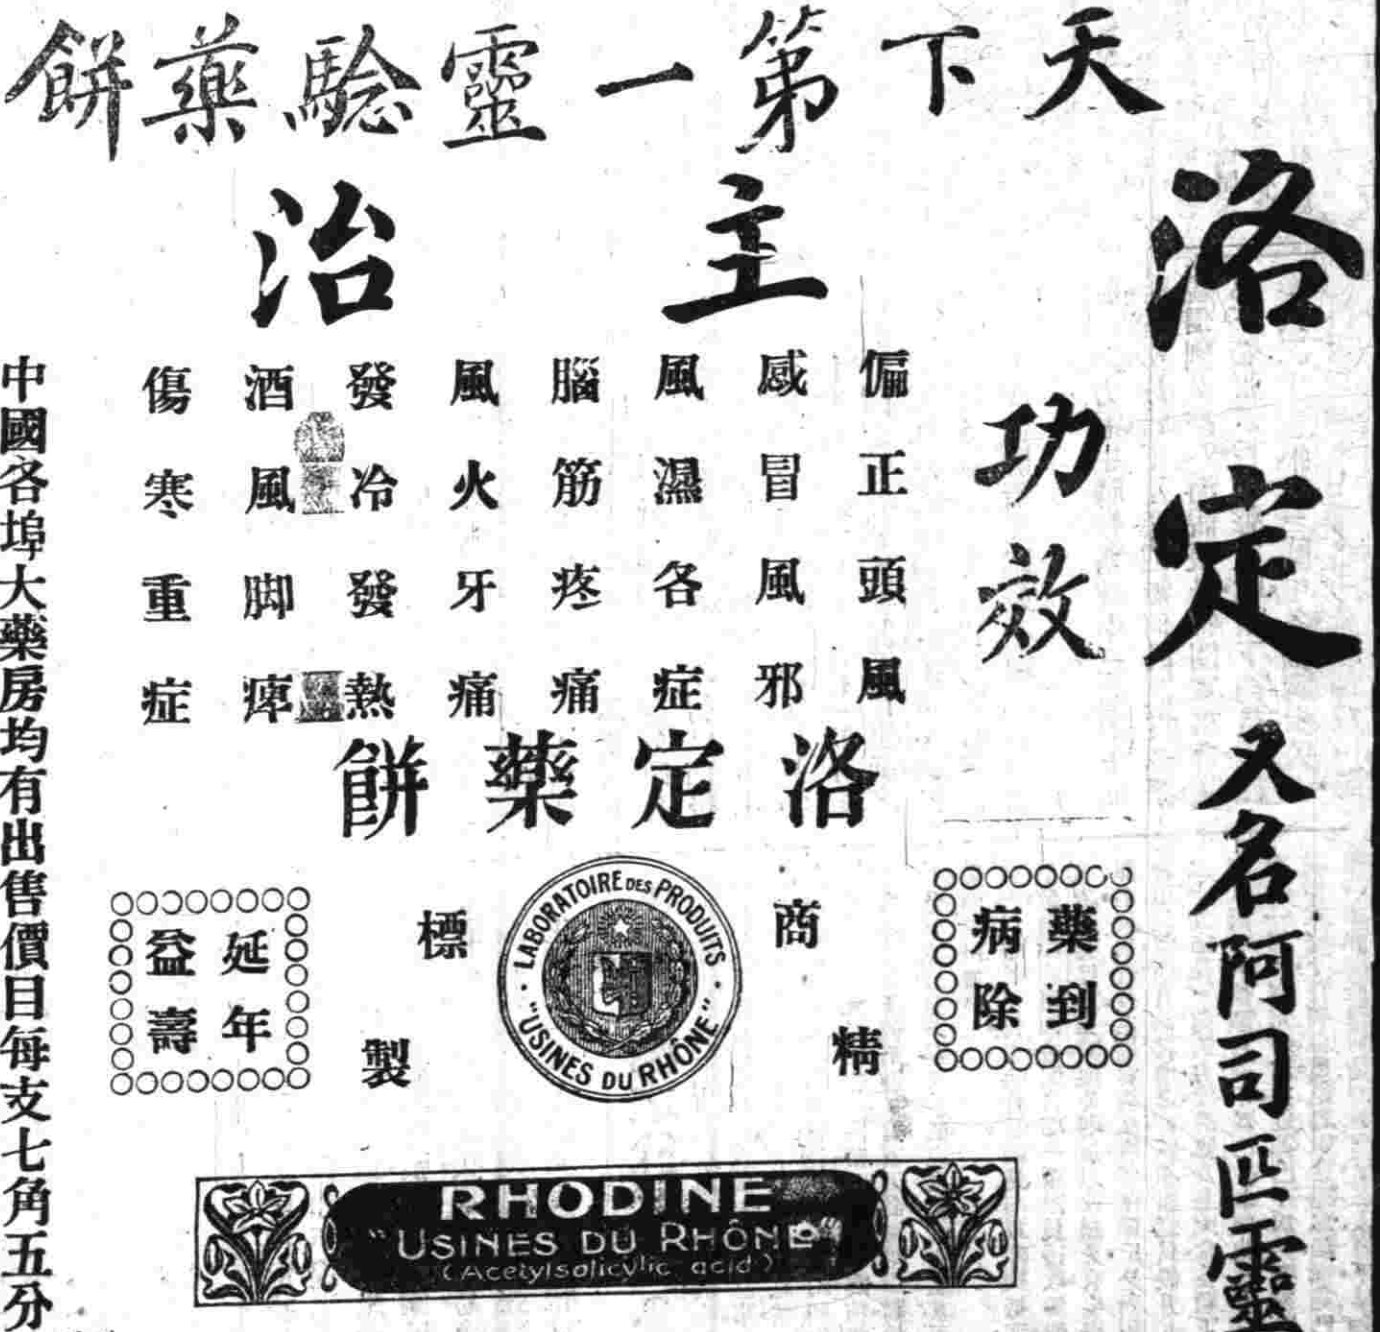 天下第一靈驗藥餅
洛定又名阿司匹靈
主治
功效
偏正頭風
感冒風邪
風濕各症
腦筋疼痛
風火牙痛
發冷發熱
酒風脚痺
傷寒重症
洛定藥餅
藥到
病除
商標
精製
LABORATOIRE DES PRODUITS
"USINES DU RHÔNE"
延年
益壽
RHODINE
"USINES DU RHÔNE
(Acetylsalicylic acid)
中國各埠大藥房均有出售價目每支七角五分